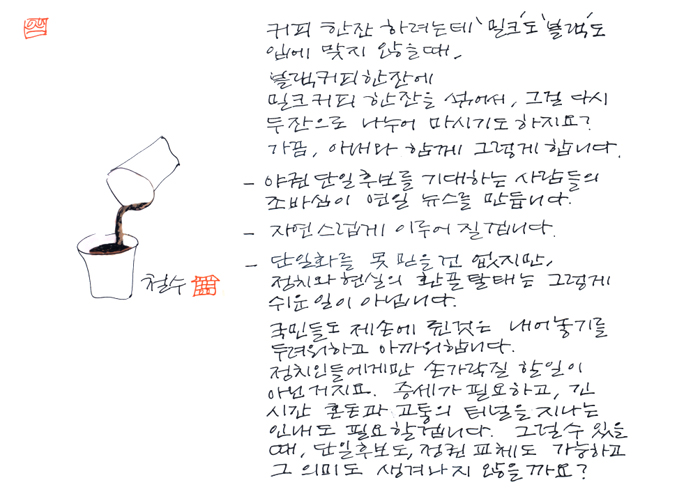 커피 한잔 하려는데 '밀크'도 '블랙'도
입에 맞지 않을때,
블랙커피한잔에
밀크커피 한잔을 섞어서, 그걸 다시
두잔으로 나누어 마시기도 하지요?
가끔, 아내와 함께 그렇게 합니다.
- 야권 단일후보를 기대하는 사람들의
조바심이 연일 뉴스를 만듭니다.
- 자연스럽게 이루어 질겁니다.
- 단일화를 못 믿을건 없지만,
정치와 현실의 환골탈태는 그렇게
쉬운일이 아닙니다.
국민들도 제손에 쥔것은 내어놓기를
두려워하고 아까워합니다.
정치인들에게만 손가락질 할일이
아닌거지요. 증세가 필요하고, 긴
시간 혼돈과 고통의 터널을 지나는
인내도 필요할겁니다. 그럴수 있을
때, 단일후보도, 정권 교체도 가능하고
그 의미도 생겨나지 않을까요?
철수